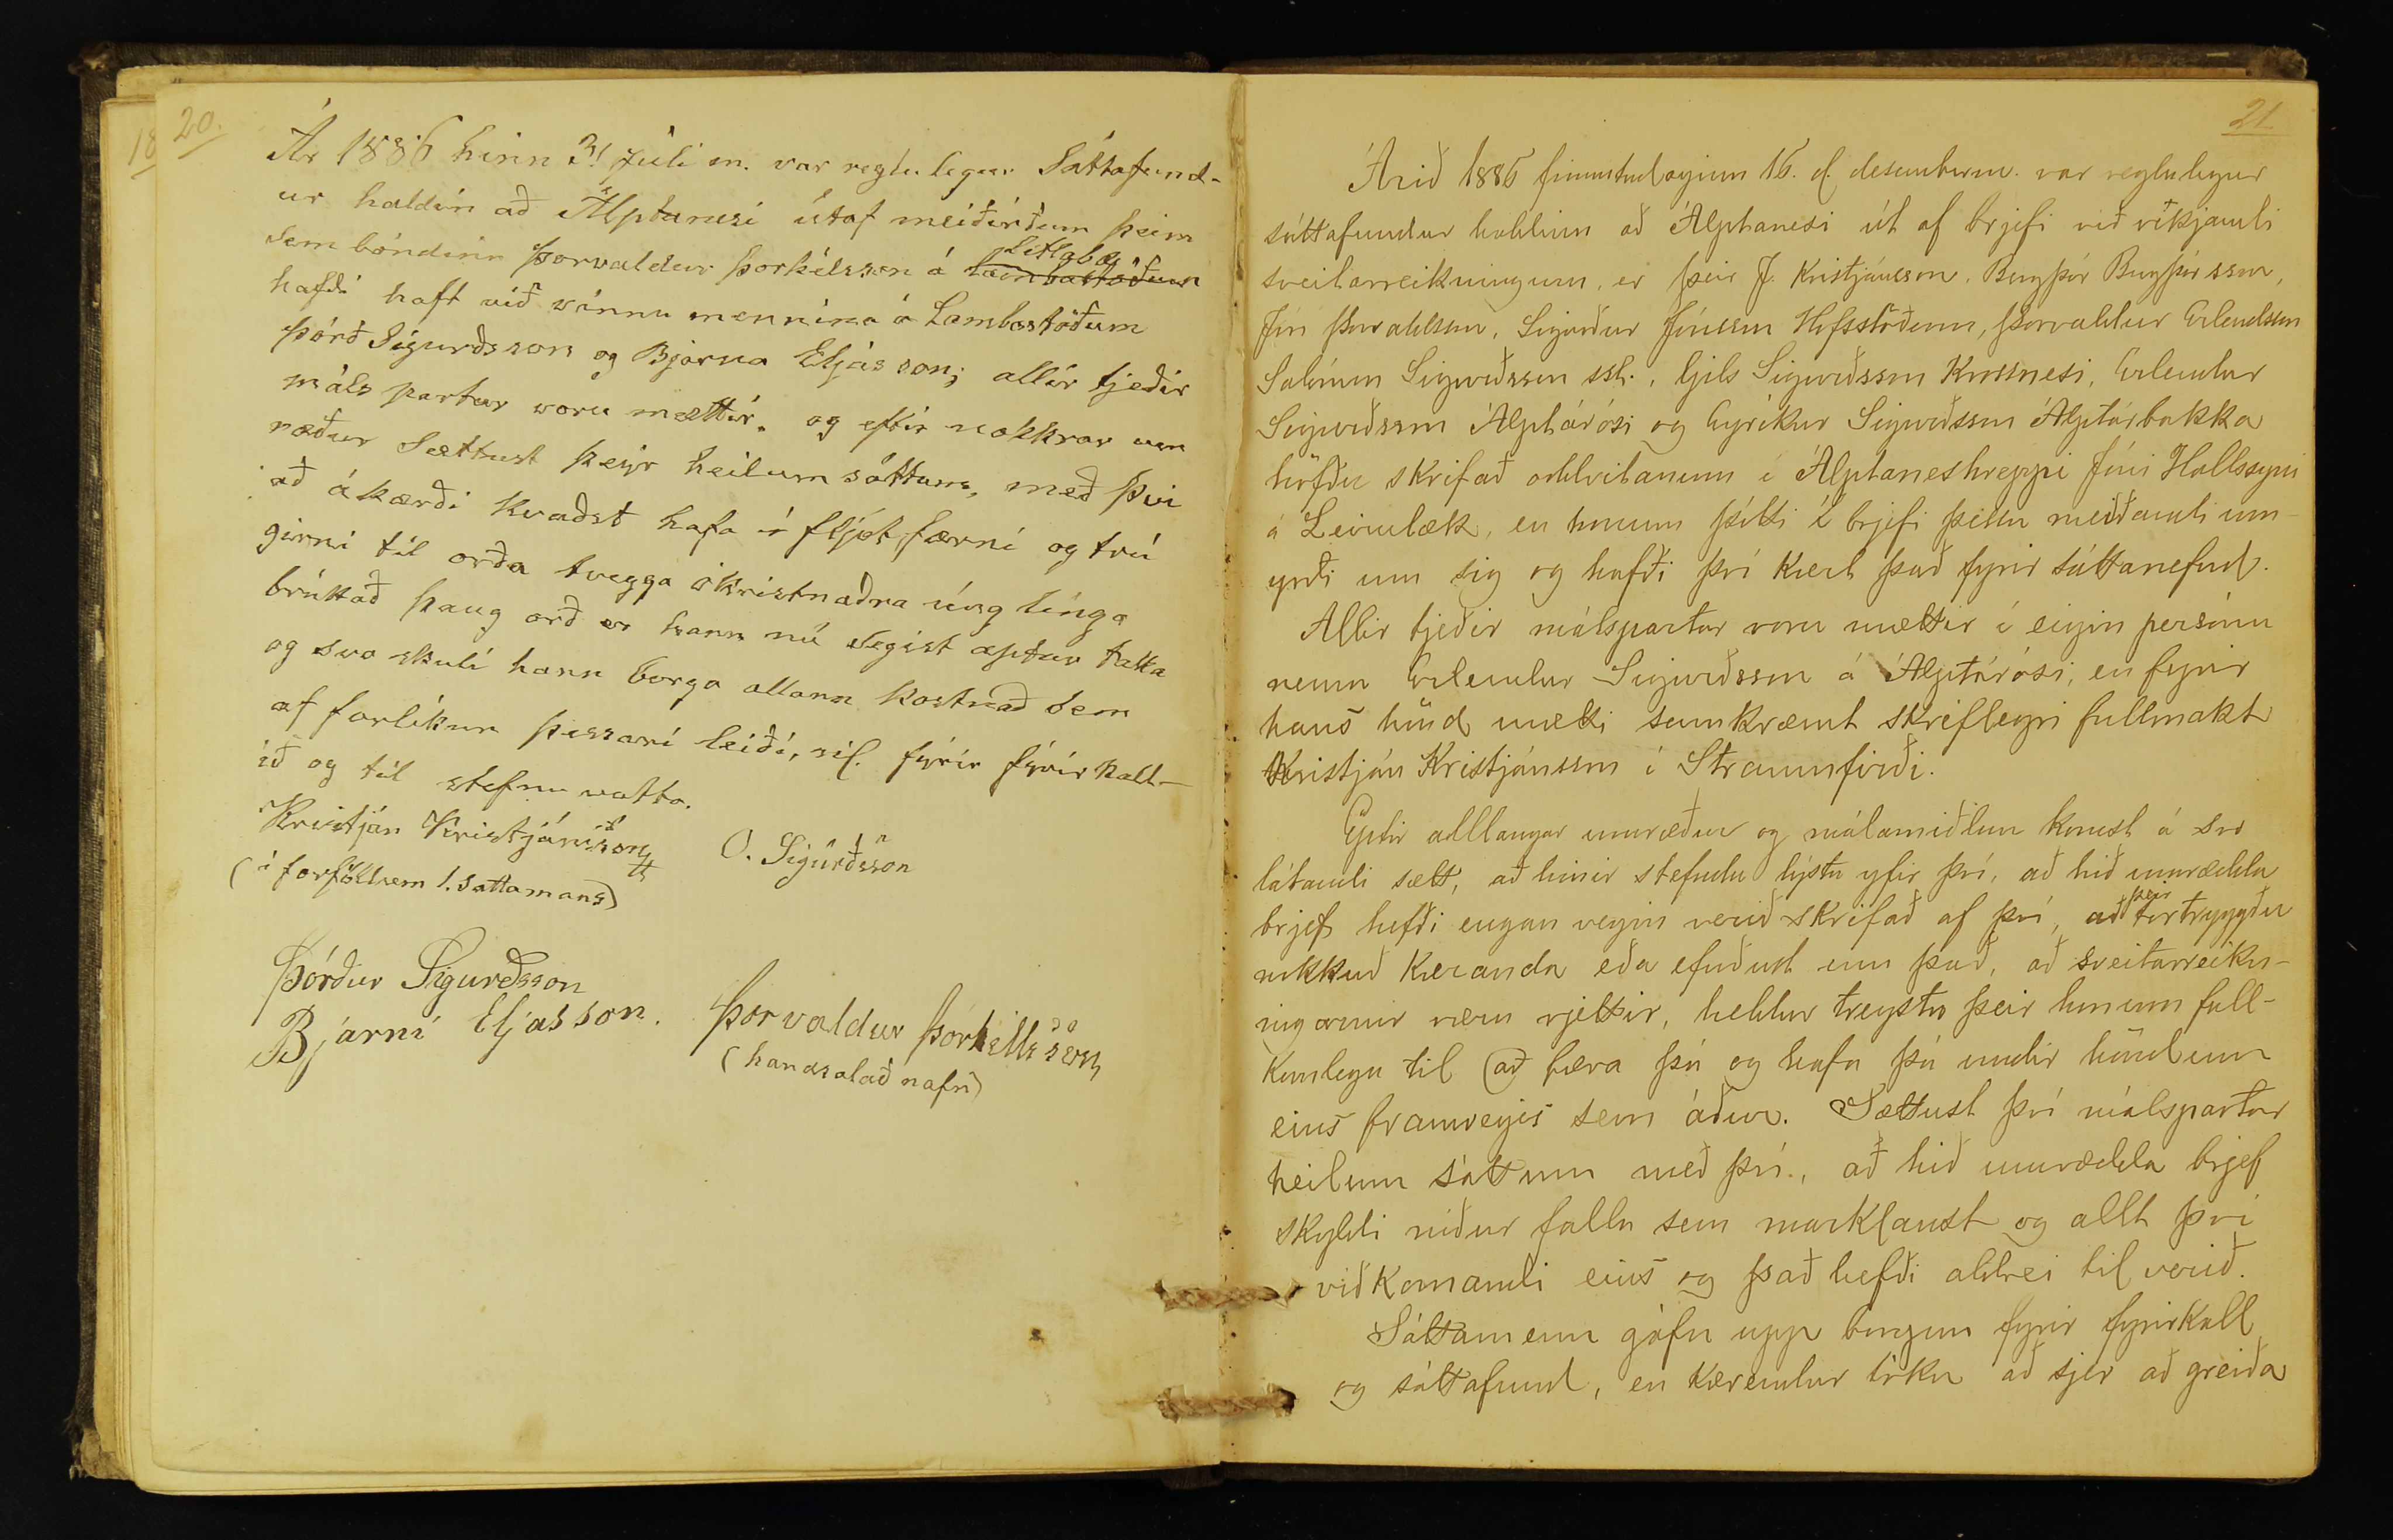 18
20.
Ár 1886 hinn 31 Júlí m. var reglulegur Sáttafund-
ur haldin að Álptanesi útaf meiðirðum þeim
Sem bóndinn Þorvaldur Þorkélsson á Litlabæ Lambastöðum
hafði haft við vinnu mennina á Lambastöðum
Þórð Sigurðsson og Bjarna Elíasson; allir tjeðir
máls partar voru mættir. og eftir nokkrar um
ræður Sættust þeir heilum sáttum, með því
að ákærði kvaðst hafa í fljótfærni og trú
girni til orða tveggja ókristnaðra únglínga
brúkað þaug orð er hann nú Segist aptur taka
og svo skuli hann borga allann kostnað sem
af forlíkun þessari leiði, sil. fyrir fyrirkall-
ið og til stefnu votta.
Kristján Kristjánsson
O. Sigurðsson
(í forföllum 1. sattamans)
Þórður Sigurðsson
Bjarni Eljasson.
Þorvaldur Þorkellsson
(handsalað nafn)
21
Árið 1886 fimmtudaginn 16. d. desemberm. var reglulegur
sáttafundur haldinn að Álptanesi út af brjefi við víkjandi
sveitarreikningum, er þeir J. Kristjánsson, Bergþór Bergþórsson,
Jón Þorvaldsson, Sigurður Jónsson Hofsstöðum, Þorvaldur Erlendsson
Salómon Sigurðsson sst., Gils Sigurðsson Krossnesi, Erlendur
Sigurðsson Álptárósi og Eyríkur Sigurðsson Álptárbakka
höfðu skrifað oddvitanum í Álptaneshreppi Jóni Hallssyni
á Leirulæk, en honum þótti í brjefi þessu meiðandi um-
yrði um sig og hafði því kært það fyrir sáttanefnd.
Allir tjeðir málspartar voru mættir í eigin persónu
nema Erlendur Sigurðsson á Álptárósi, en fyrir
hans hönd mætti samkvæmt skriflegri fullmakt
Kristján Kristjánsson í Straumfirði.
Eptir alllangar umræður og málamiðlun komst á svo
látandi sætt, að hinir stefndu lýstu yfir því, að hið umrædda
brjef hefði engan vegin verið skrifað af því, að þeir tortryggðu
nokkuð kæranda eða efuðust um það, að sveitarreikn-
ingarnir væru rjettir, heldur treystu þeir honum full-
komlega til að færa þá og hafa þá undir höndum
eins framvegis sem áður. Sættust því málspartar
heilum sáttum með því, að hið umrædda brjef
skyldi niður falla sem marklaust og allt því
viðkomandi eins og það hefði aldrei til verið.
Sáttamenn gáfu upp borgun fyrir fyrirkall
og sáttafund, en kærendur tóku að sjer að greiða